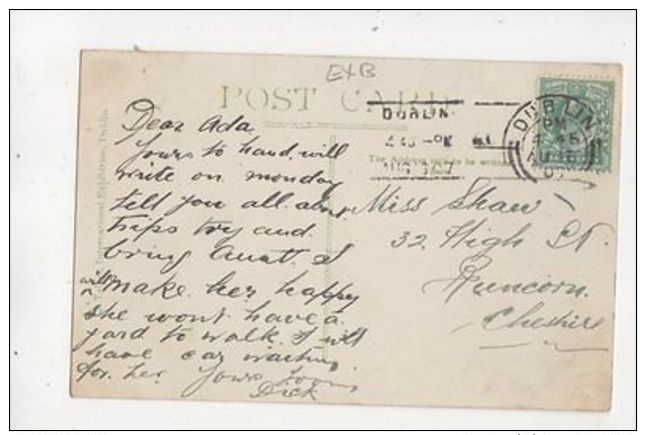 EXB
POST CARD
DUBLIN
DUBLIN
4 45 PM
The Address to be written
International Exhibition, Dublin
Dear Ada
Yours to hand, will
write on monday
tell you all about
trips try and
bring Aunt. I
will make her happy
she wont have a
yard to walk. I will
have car waiting
for her. Yours
Dick
Miss Shaw
32 High St.
Runcorn.
Cheshire